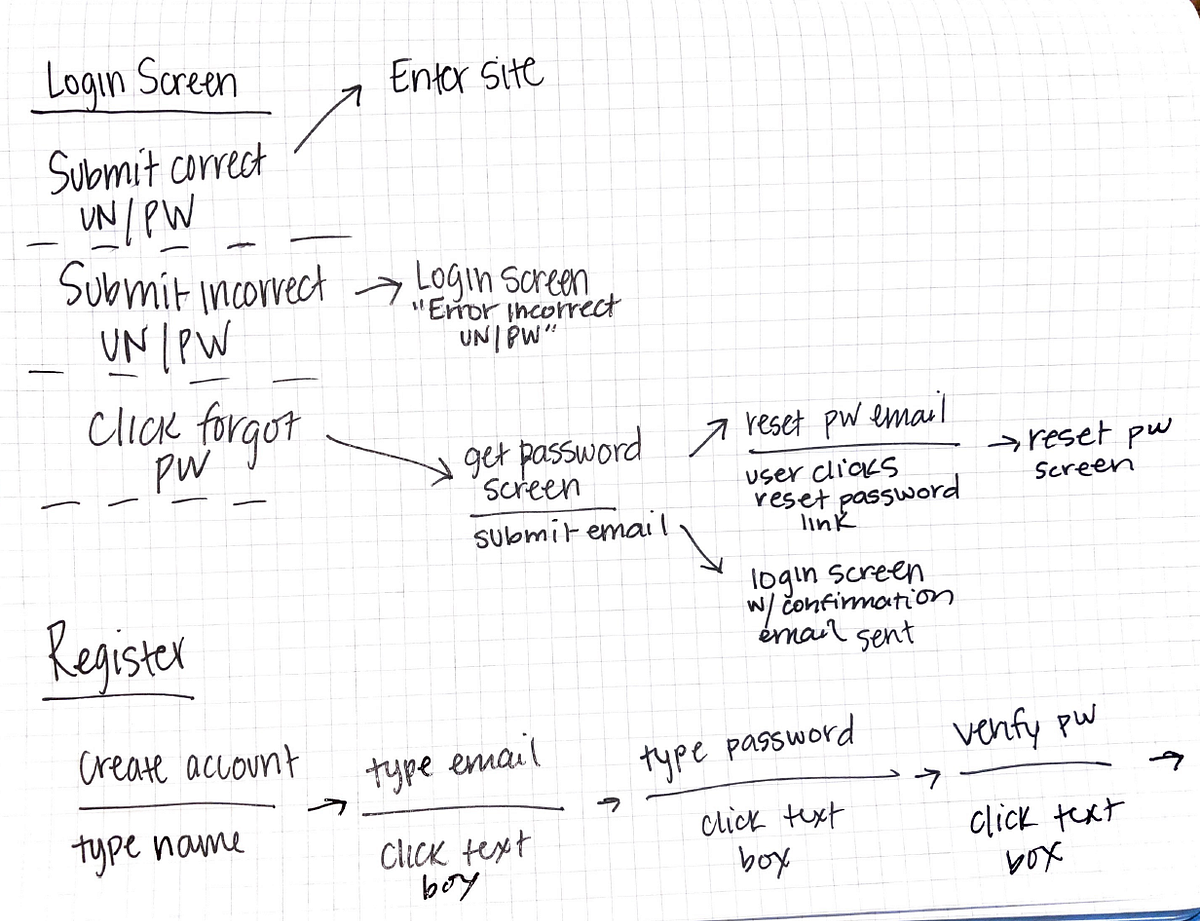 Login Screen
Enter site
Submit correct
UN/PW
Submit incorrect
UN/PW
Login screen
"Error incorrect
UN/PW"
Click forgot
PW
get password
screen
submit email
reset pw email
user clicks
reset password
link
reset pw
screen
login screen
w/ confirmation
email sent
Register
create account
type name
type email
click text
box
type password
click text
box
verify pw
click text
box